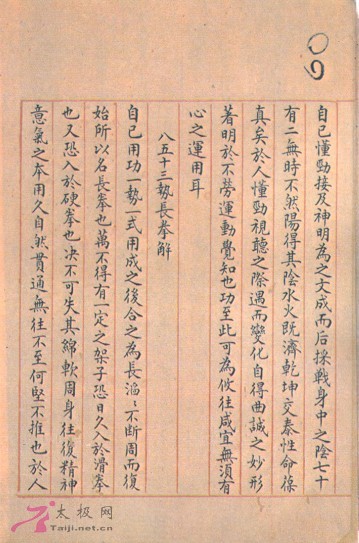 自己懂勁接及神明為之文成而后採戰身中之陰七十
有二無時不然陽得其陰水火既濟乾坤交泰性命葆
真矣於人懂勁視聽之際遇而變化自得曲誠之妙形
著明於不勞運動覺知也功至此可為攸往咸宜無須有
心之運用耳
八五十三勢長拳解
自己用功一勢一式用成之後合之為長滔滔不斷周而復
始所以名長拳也萬不得有一定之架子恐日久入於滑拳
也又恐入於硬拳也决不可失其綿軟周身往復精神
意氣之本用久自然貫通無往不至何堅不推也於人
太极网
Taiji.net.cn